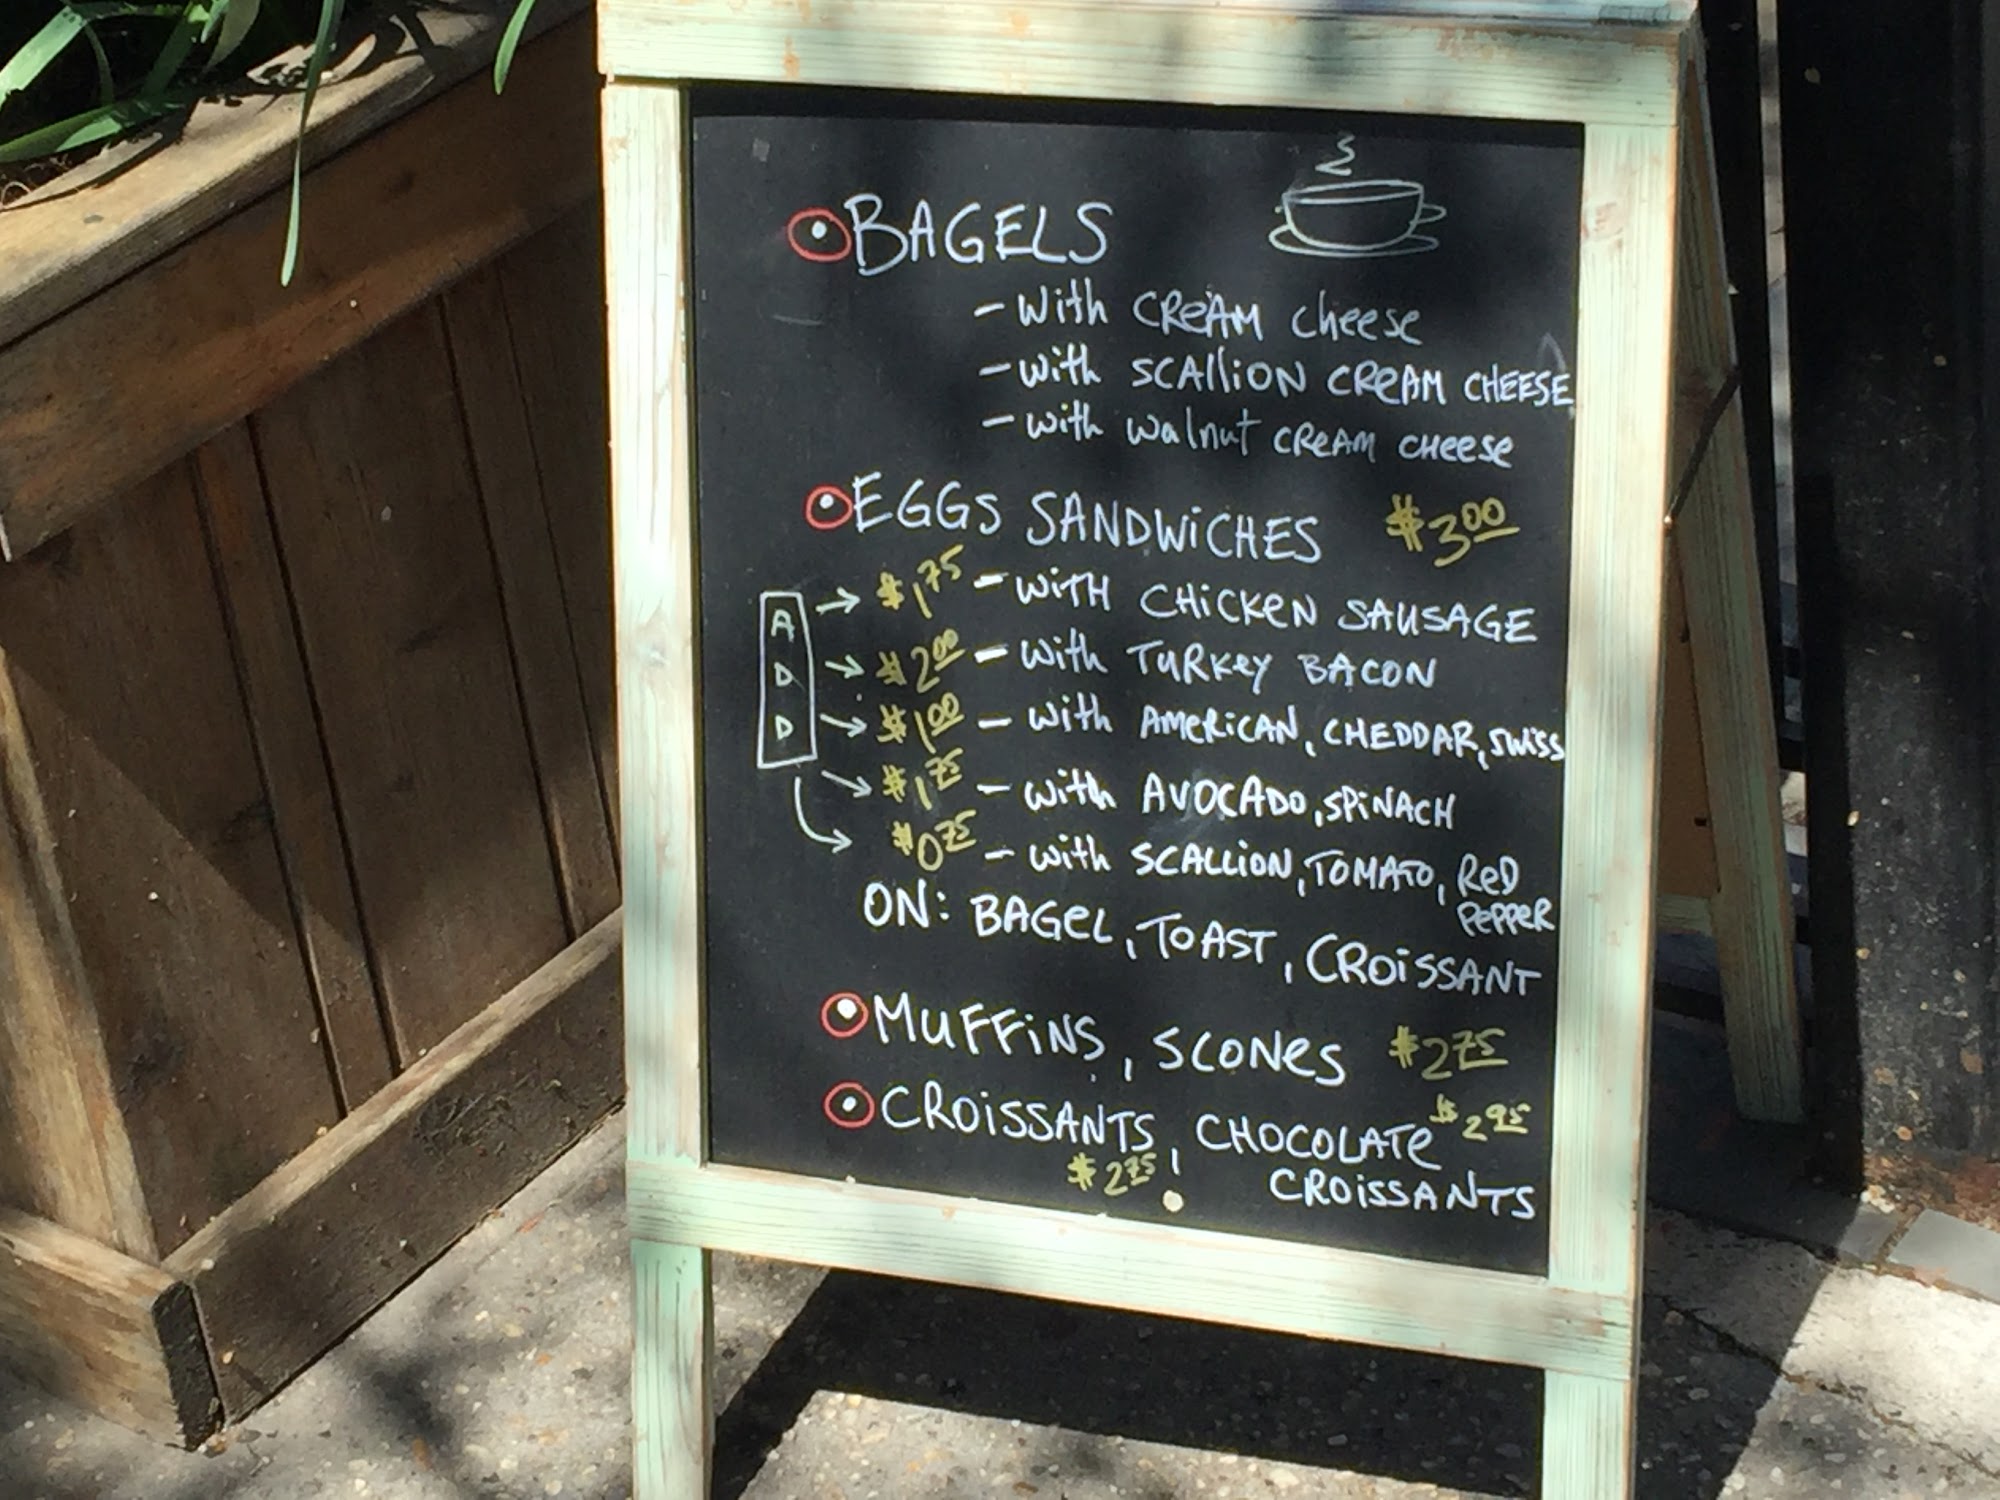 BAGELS
- With CREAM Cheese
- with SCAllION CREAM CHEESE
- with walnut CREAM CHeese
EGGS SANDWiCHES $3.00
ADD
→ $1.75 - WiTH CHiCKEN SAUSAGE
→ $2.00 - with TURKey BACON
→ $1.00 - with AMERICAN, CHEDDAR, SWISS
→ $1.75 - with AVOCADO, SPiNACH
→ $0.75 - with SCALLION, TOMATO, Red
PePPeR
ON: BAGeL, TOAST, CROiSSANT
MUFFiNS, SCONeS $2.75
CROiSSANTS, CHOCOLATe $2.95
$2.75 CROiSSANTS